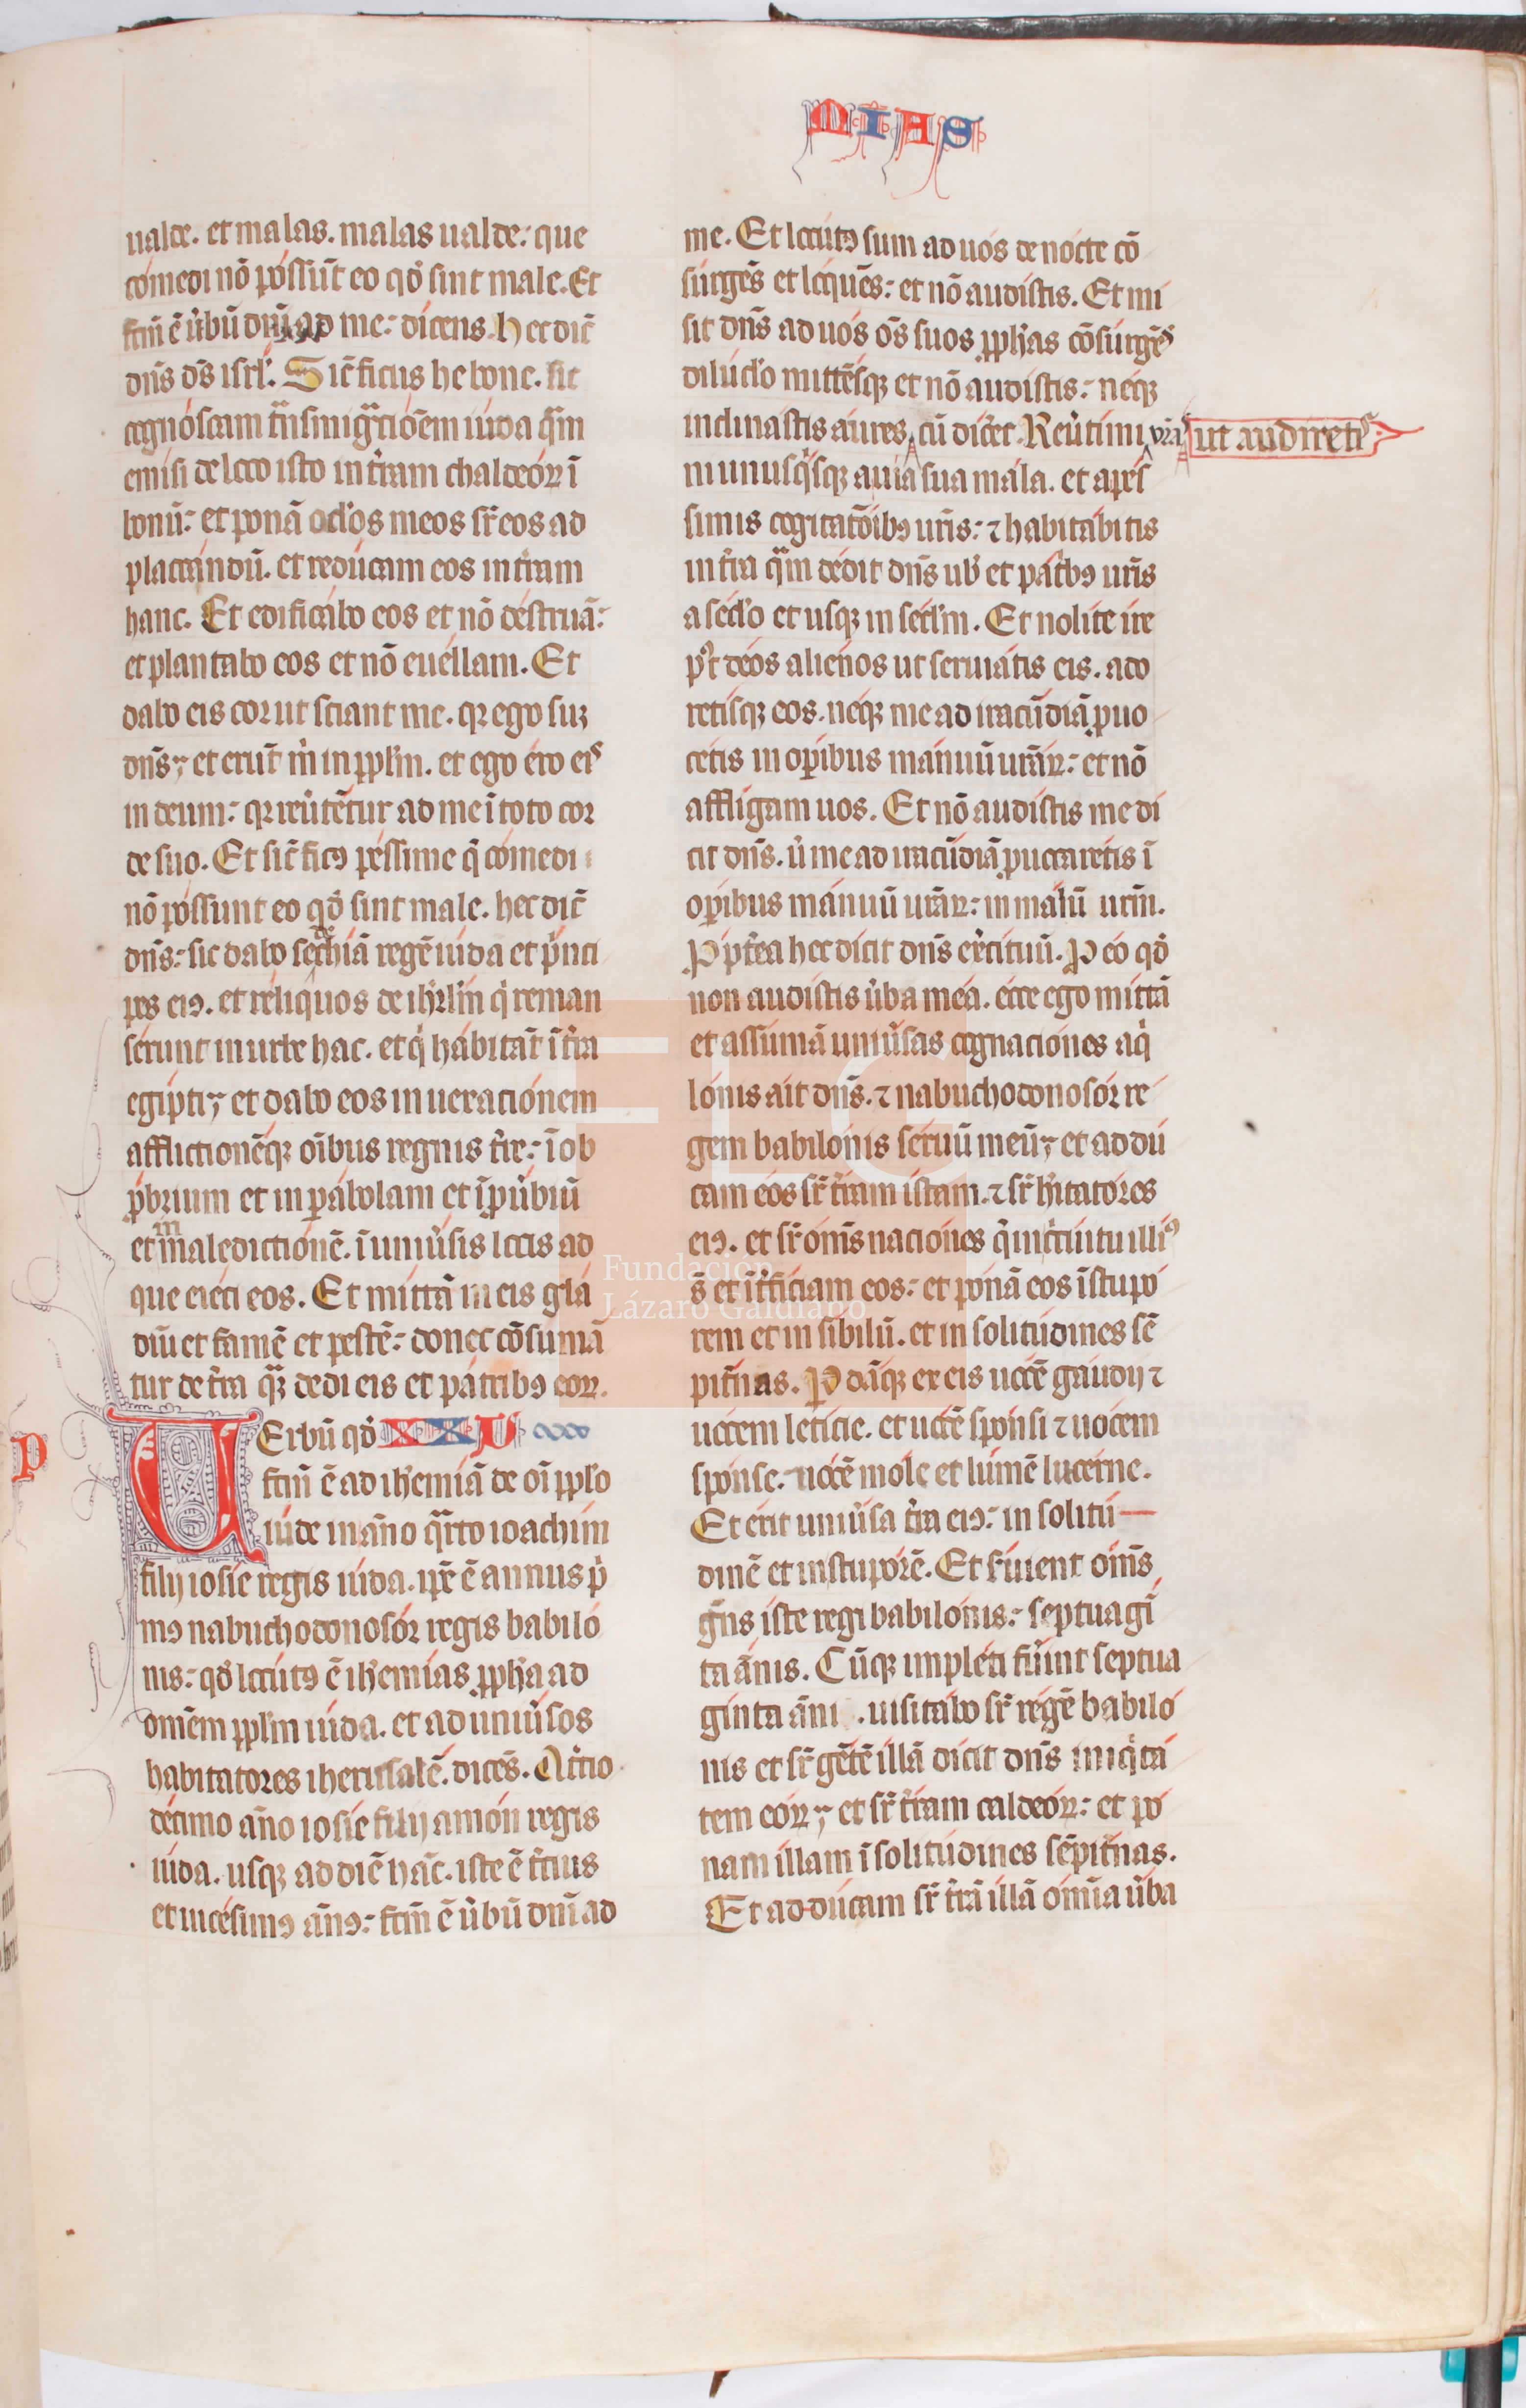 MIAS
ualde. et malas. malas ualde: que
cómedi nõ póssūt eo qđ sint male. Et
fcm̄ ē ûbū dnī ad me: dícens. Hec dic̄
dn̄s ds̄ isrl'. Sic̄ ficus he bone. sic
cognóscam tn̄smigrcióēm iúda qm
emísi de loco isto in tr̄am chaldeóꝝ ī
bonū: et ponā oclos meos sr̄ eos ad
placandū. et redúcam eos in tr̄am
hanc. Et edificábo eos et nõ déstruā:
et plantabo eos et nõ euéllam. Et
dabo eis cor ut sciant me. qꝛ ego suꝫ
dn̄s; et erūt m̄ in pplm̄. et ego éro eis
in deum: qꝛ reûtētur ad me ī toto cor
de suo. Et sic̄ ficꝰ péssime q̄ cómedi
nõ póssunt eo qđ sint male. hec dic̄
dn̄s: sic dabo sedechiā regē iúda et pn̄ci
pes eiꝰ. et réliquos de ihrlm̄ q̇ reman
sérunt in urbe hac. et q̇ hábitāt ī tr̄a
egípti; et dabo eos in uexatiónem
afflictionēqꝫ oībus regnis tr̄e: ī ob
ꝓbrium et in parábolam et ī ꝓûbiū
et in maledictiónē. ī uniûsis locis ad
que eiéci eos. Et mittā in eis glá
diū et famē et pestē: donec cõsumā
tur de tr̄a qꝫ dedi eis et pátribꝰ eoꝝ.
Verbū qđ XXV
fcm̄ ē ad ihemiā de oī pplo
iúde in an̄o qrto ioachím
filij iosíe regis iúda. ip̄e ē annus ṗ
mꝰ nabuchodonosór regis babiló
nis: qđ locútꝰ ē ihemías ꝓpha ad
omēm pplm̄ iúda. et ad uniûsos
habitatores iherusalē. dicēs. A tr̄cio
décimo an̄o iosíe filij amón regis
iúda. usqꝫ ad diē hāc. iste ē tr̄cius
et uicésimꝰ ān̄ꝰ: fcm̄ ē ûbū dnī ad
me. Et locútꝰ sum ad uós de nócte cõ
súrgēs et lóquēs: et nõ audístis. Et mí
sit dn̄s ad uós os̄ suos ꝓphas cõsúrgēs
dilúclo mittēsqꝫ et nõ audístis: néqꝫ
inclinastis áures, cū dícet. Reûtími ur̄as ut audiretis
ni unusq̇sqꝫ a uia sua mála. et a pes
simis cogitatõibꝰ urīs: ⁊ habitábitis
in tr̄a qm dédit dn̄s uob et pátbꝰ urīs
a séclo et usqꝫ in séclm̄. Et nolíte íre
pꝰt déos aliénos ut seruiátis eis. ado
retísqꝫ eos. néqꝫ me ad iracūdiā ꝓuo
cétis in opibus mánuū urāꝝ: et nõ
afflígam uos. Et nõ audístis me di
cit dn̄s. û me ad iracūdiā ꝓuocarétis ī
opibus mánuū urāꝝ: in málū urm̄.
Ppt̄ea hec dícit dn̄s exr̄cítuū. P eó qđ
non audístis ûba méa. ecce ego míttā
et assúmā uniûsas cognaciónes aq̇
lónis aít dn̄s. ⁊ nabuchodonosór re
gem babilónis séruū meū; et addú
cam éos sr̄ tr̄am istam. ⁊ sr̄ hitatóres
eiꝰ. et sr̄ om̄s naciónes q̄ in círcúitu illiꝰ
s̄ et īterfíciam eos: et pónā eos ī stupó
rem et in síbilū. et in solitúdines sē
pitnas. P dāqꝫ ex eis uocē gáudij ⁊
uócem letície. et uócē spónsi ⁊ uócem
spónse. uócē mole et lúmē lucérne.
Et érit uniûsa tr̄a eiꝰ: in solitú
dinē et in stupórē. Et sr̄uient om̄s
gn̄s iste regi babilónis: septuagī
ta ānis. Cūqꝫ impléti fûint septua
gínta āni. uisitábo sr̄ régē babiló
nis et sr̄ gētē illā dícit dn̄s iniq̇tá
tem eóꝝ; et sr̄ tr̄am caldeóꝝ: et po
nam íllam ī solitúdines sēpitnas.
Et addúcam sr̄ tr̄ā illā ómīa ûba
p
Fundación
Lázaro Galdiano